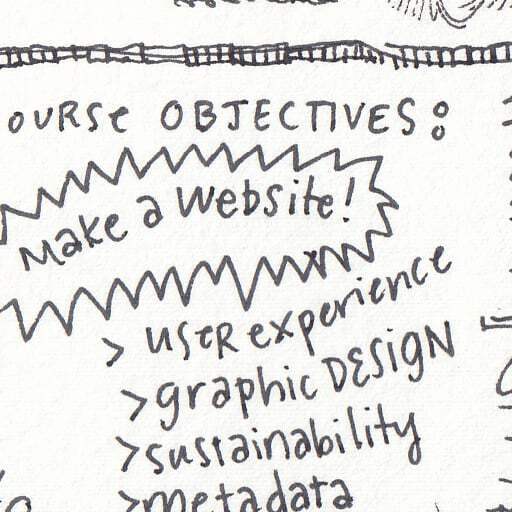 OURSE OBJECTIVES:
Make a website!
> USER experience
> graphic DESIGN
> sustainability
> metadata